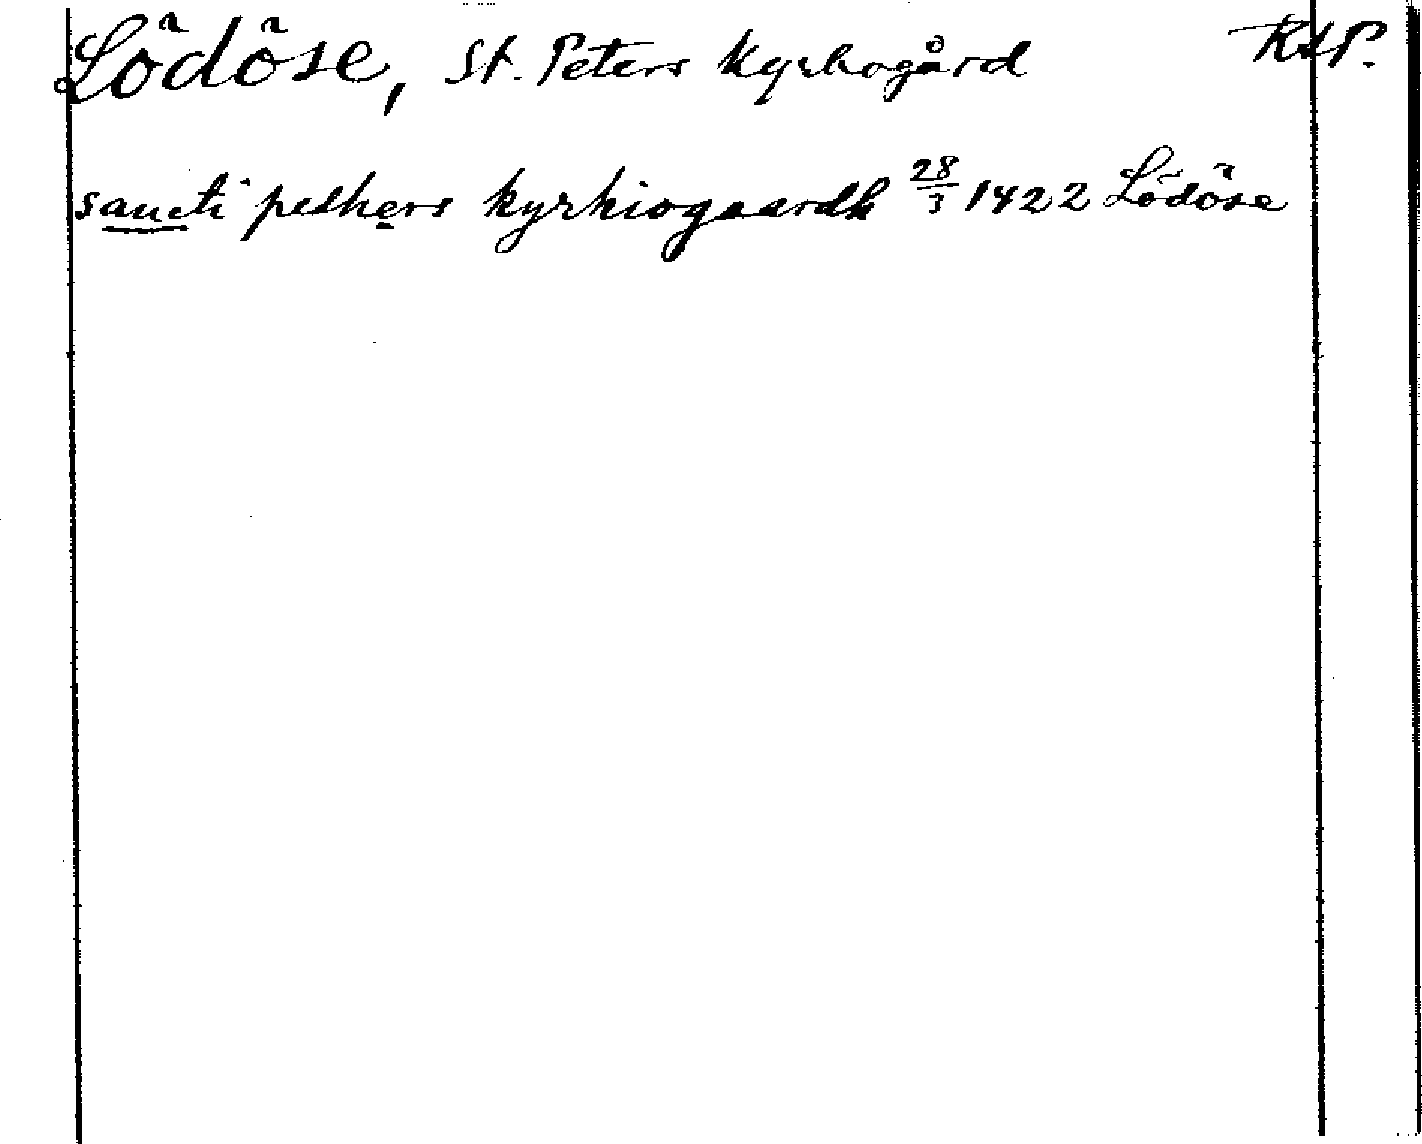 Lödöse, St. Peters kyrkogård RAP.
sancti pethers kyrkiogaardh 28/3 1422 Lödöse